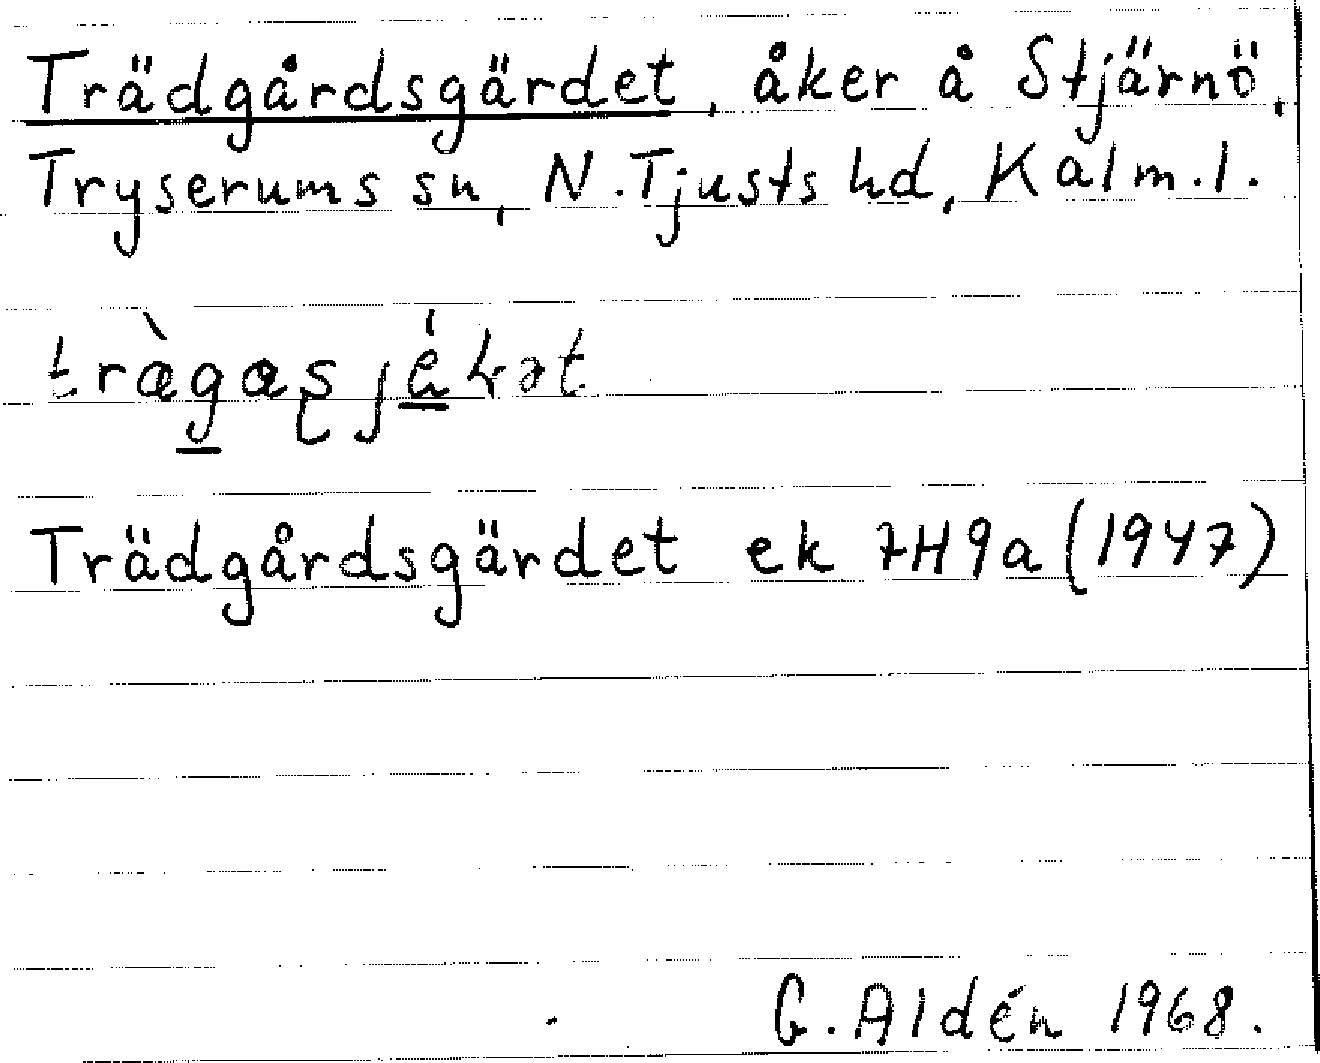 Trädgårdsgärdet, åker å Stjärnö,
Tryserums sn, N. Tjusts hd, Kalm. l.
Trädgårdsgärdet ek 7H9a (1947)
G. Aldén 1968.